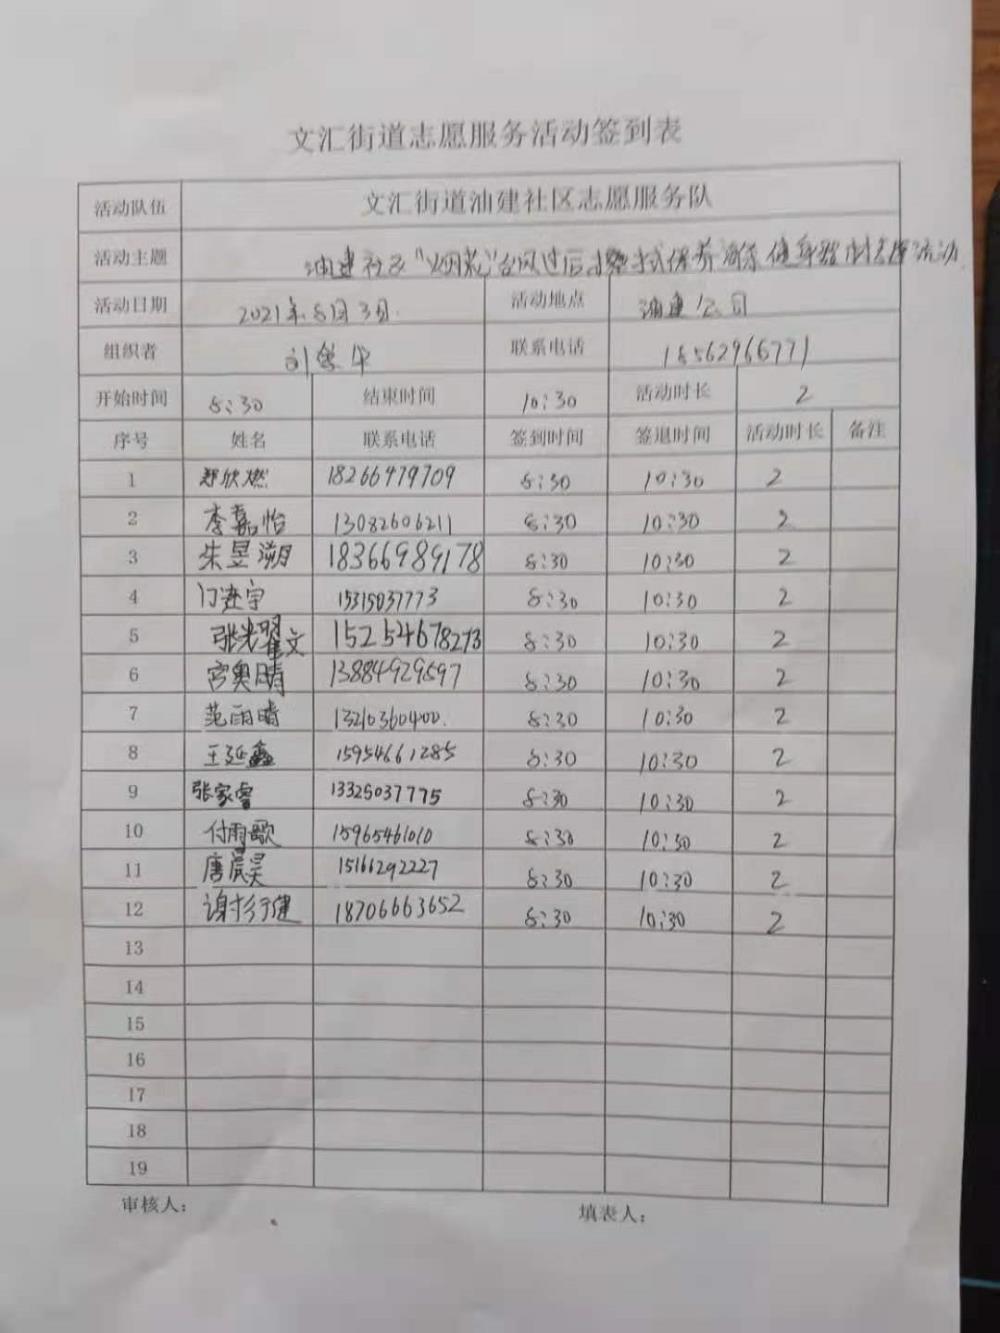 文汇街道志愿服务活动签到表
活动队伍 文汇街道油建社区志愿服务队
活动主题 油建社区"烟花"台风过后 保养 健身器材志愿活动
活动日期 2021年8月3日 活动地点 油建公司
组织者 刘 华 联系电话 18562966771
开始时间 8:30 结束时间 10:30 活动时长 2
序号 姓名 联系电话 签到时间 签退时间 活动时长 备注
1 郑欣燃 18266479709 8:30 10:30 2
2 李嘉怡 13082606211 8:30 10:30 2
3 朱昱溯 18366989178 8:30 10:30 2
4 门进宇 15315037773 8:30 10:30 2
5 张光翟文 15254678273 8:30 10:30 2
6 宫奥晴 13884929597 8:30 10:30 2
7 范雨晴 13210360400. 8:30 10:30 2
8 王延鑫 15954661285 8:30 10:30 2
9 张家睿 13325037775 8:30 10:30 2
10 付雨歌 15965461010 8:30 10:30 2
11 唐晨昊 15166292227 8:30 10:30 2
12 谢杉行健 18706663652 8:30 10:30 2
13
14
15
16
17
18
19
审核人： 填表人：